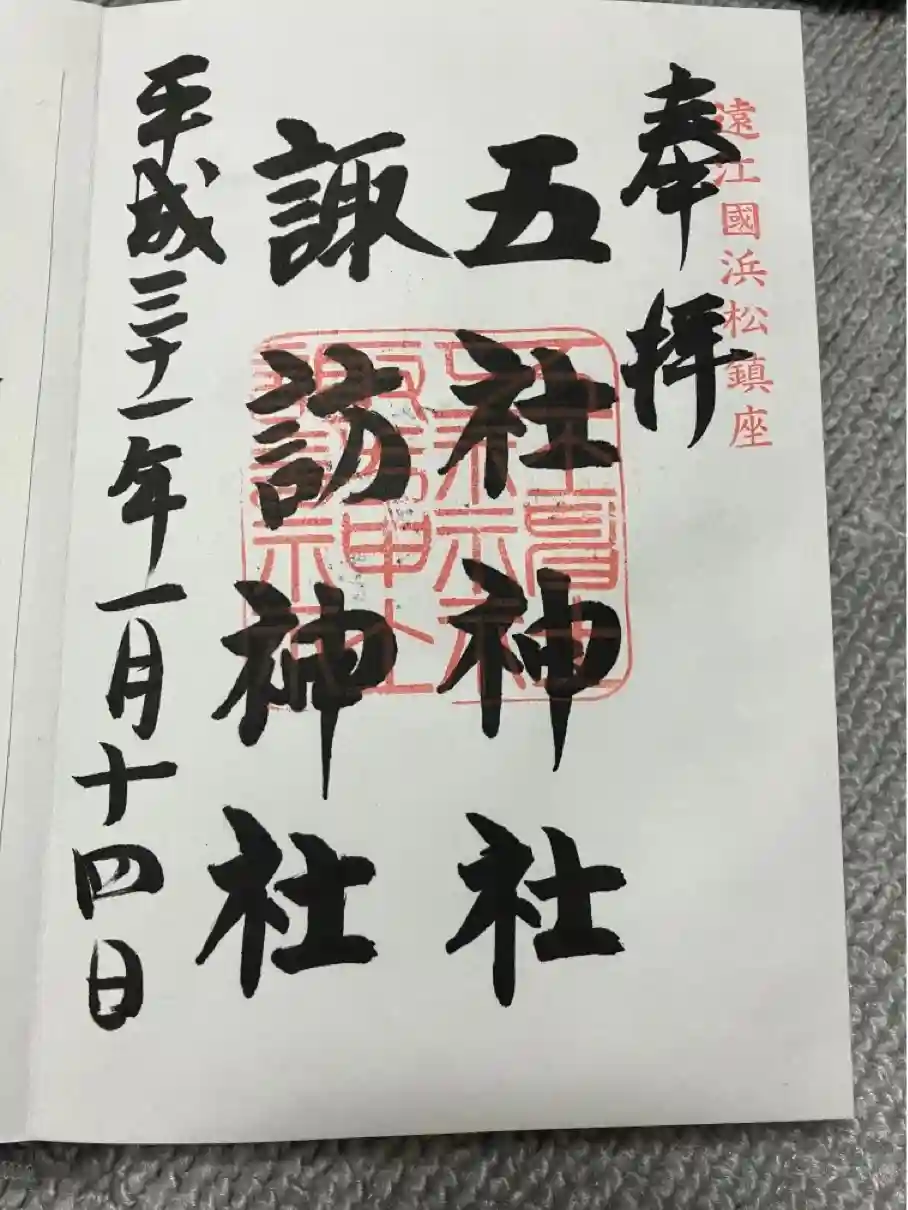 遠江國浜松鎮座
奉拝
五社神社
諏訪神社
平成三十一年一月十四日